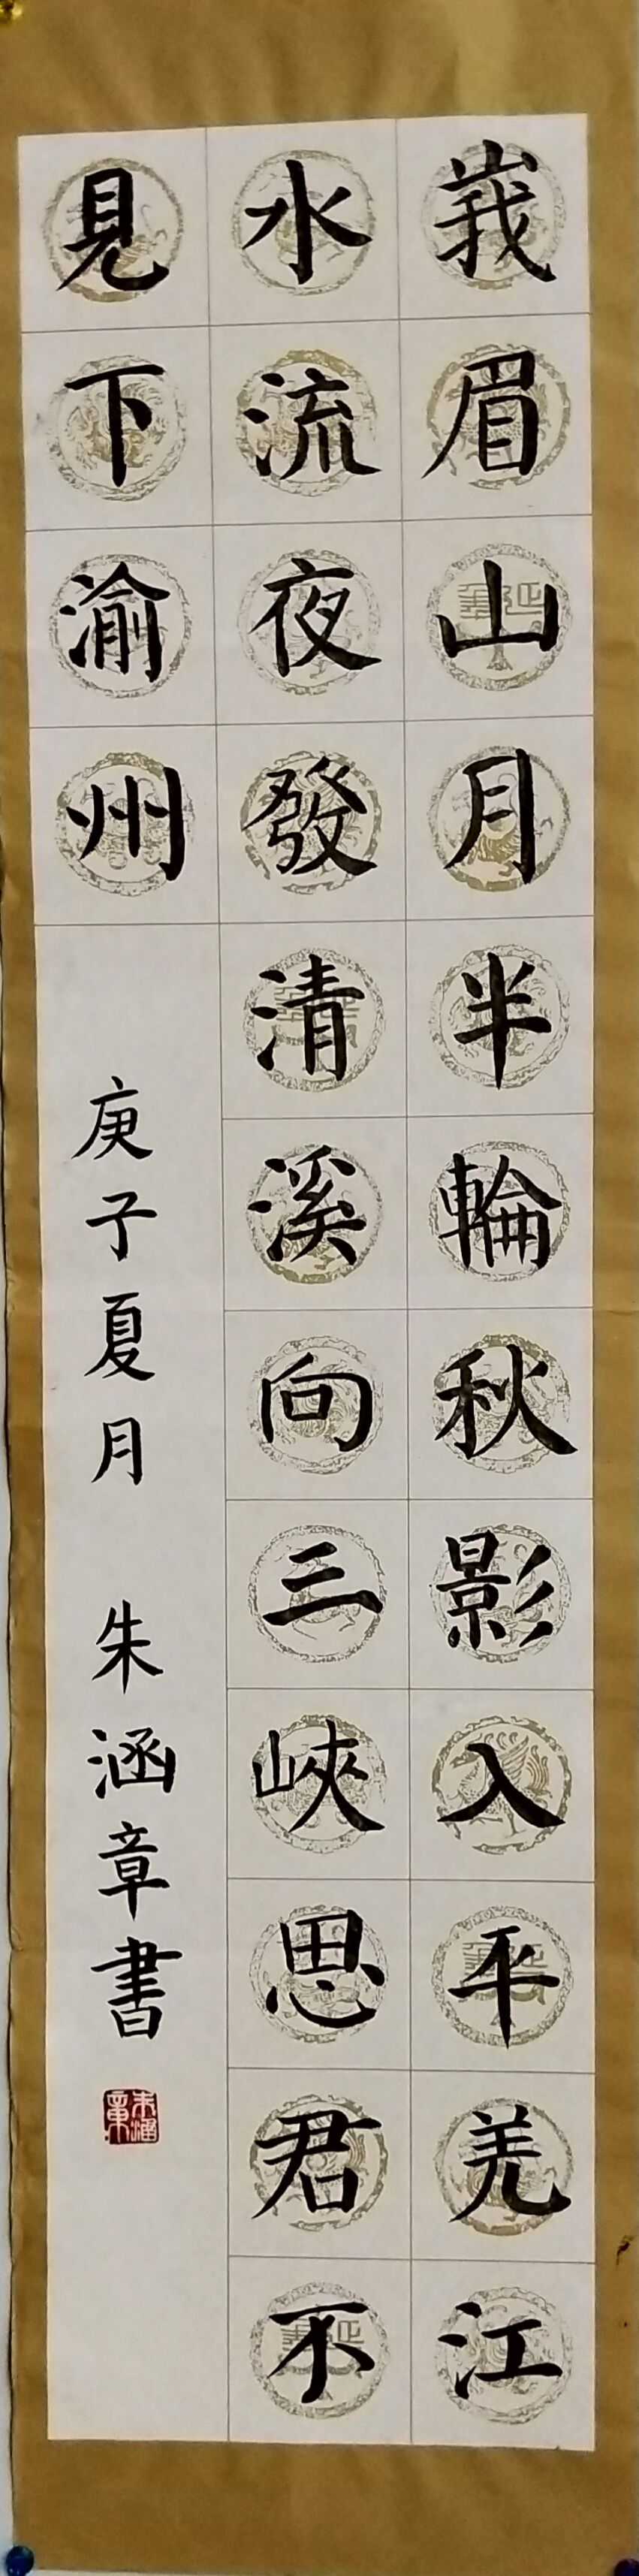 峩眉山月半輪秋影入平羌江
水流夜發清溪向三峽思君不
見下渝州
庚子夏月 朱涵章書
朱涵章